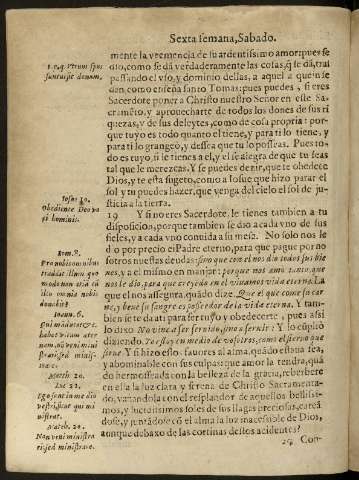 Sexta semana, Sabado.
mente la vemencia de su ardentissimo amor: pues se
dio, como se dá verdaderamente las cosas, q̃ se dã, tras
passando el vso, y dominio dellas, a aquel a quien se
dan, como enseña santo Tomas: pues puedes, si eres
Sacerdote poner a Christo nuestro Señor en esse Sa-
cramẽto, y aprouecharte de todos los dones de sus ri
quezas, y de sus deleytes, como de cosa propria: por-
que tuyo es todo quanto el tiene, y para ti lo tiene, y
para ti lo grangeò, y dessea que tu lo posseas. Pues to-
do es tuyo, si le tienes a el, y el se alegra de que tu seas
tal que le merezcas. Y se puedes dezir, que te obedece
Dios, y te esta sugeto, como a Iosue que hizo parar el
sol y tu puedes hazer, que venga del cielo el sol de ju-
sticia a la tierra.
19 Y si no eres Sacerdote, le tienes tambien a tu
disposicion, porque tambien se dio a cada vno de sus
fieles, y a cada vno conuida a su mesa. No solo nos le
dio por precio el Padre eterno, para que pague por no
sotros nuestras deudas: sino que con el nos dio todos sus bie
nes, y a el mismo en manjar: porque nos amo tanto, que
nos le dio, para que creyẽdo en el viuamos vida eterna. La
que el nos assegura, quãdo dize. Que el que come su car
ne, y beue su sangre es posseedor de la vida eterna. Y tam-
bien se te da ati para ser tuyo y obedecerte, pues assi
lo dixo. No vine a ser seruido, sino a seruir: Y lo cũplio
diziendo. Yo estoy en medio de vosotros, como el sieruo que
sirue. Y si hizo estos fauores al alma, quãdo estaua fea,
y abominable con sus culpas: que amor la tendra, quã
do hermoseada con la belleza de la gracia, reberbere
en ella la luz clara y serena de Christo Sacramenta-
do, vañandola con el resplandor de aquellos bellissi-
mos, y lucidissimos soles de sus llagas preciosas, careã
dose, y juntãdose cõ el alma la luz inaccessible de Dios,
aunque debaxo de las cortinas destos accidentes?
Con-
Iosue 10.
Obediente Deo vo
ci hominis.
Rom. 8.
Matth. 20.
Luc. 22.
Ego sum in medio
vestri, sicut qui mi
nistrat.
Match. 20.
Non veni ministra
ri, sed ministrare.